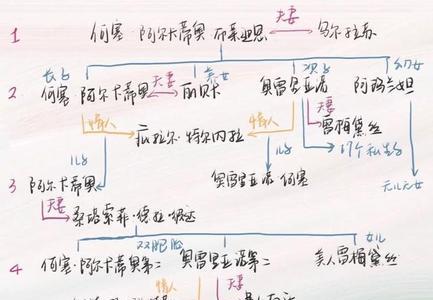 1 何塞·阿尔卡蒂奥·布恩迪亚 夫妻 乌尔苏拉
长子 养女 次子 幼女
2 何塞·阿尔卡蒂奥 夫妻 丽贝卡 奥雷里亚诺 阿玛兰妲
情人 情人 夫妻
庇拉尔·特尔内拉 雷梅黛丝
儿子 儿子 17个私生子
3 阿尔卡蒂奥 奥雷里亚诺·何塞 无儿无女
夫妻 桑塔索菲·德拉·彼达
双胞胎 女儿
4 何塞·阿尔卡蒂奥第二 奥雷里亚诺第二 美人雷梅黛丝
情人 夫妻